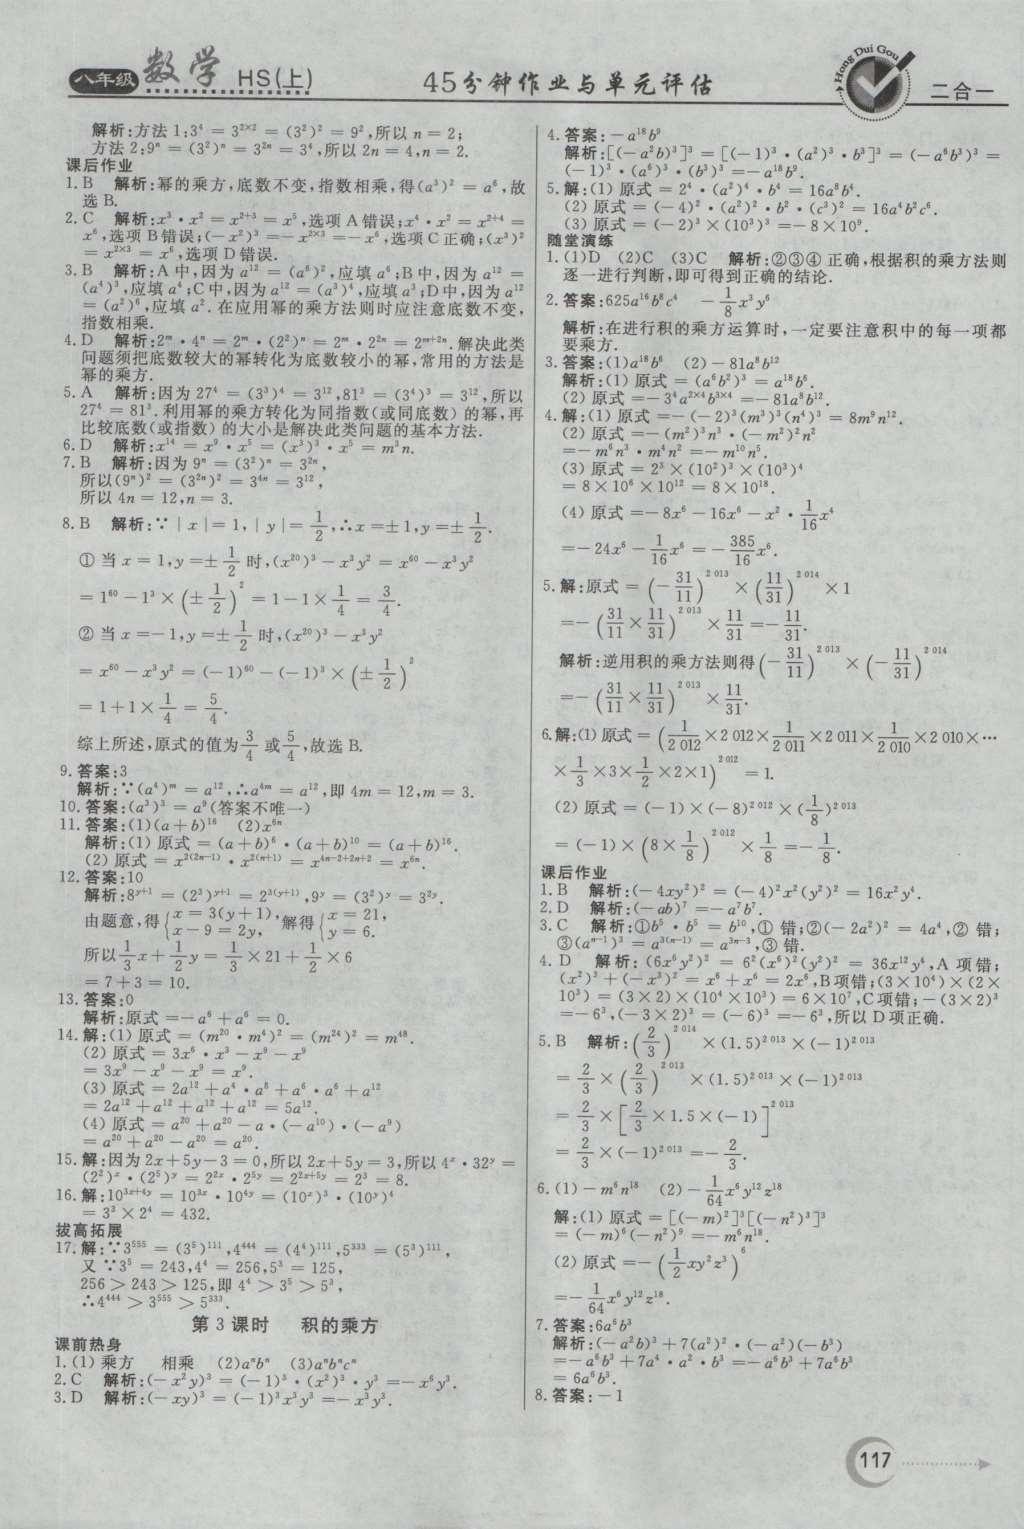 八年级 数学 HS(上) 45分钟作业与单元评估 Hong Dui Gou 二合一
解析:方法1:3⁴ = 3²ˣ² = (3²)² = 9²,所以 n = 2;
方法2:9ⁿ = (3²)ⁿ = 3²ⁿ = 3⁴,所以 2n = 4,n = 2.
课后作业
1. B 解析:幂的乘方,底数不变,指数相乘,得(a³)² = a⁶,故
选B.
2. C 解析:x³·x² = x²⁺³ = x⁵,选项A错误;x⁴·x² = x²⁺⁴ =
x⁶,选项B错误;(-x²)³ =-x²ˣ³ =-x⁶,选项C正确;(x³)²
= x²ˣ³ = x⁶,选项D错误.
3. B 解析:A中,因为 a¹² = (a⁶)²,应填a⁶;B中,因为 a¹² =
(a⁴)³,应填a⁴;C中,因为 a¹² = (a³)⁴,应填a³;D中,因为 a¹²
= (a²)⁶,应填 a². 在应用幂的乘方法则时应注意底数不变,
指数相乘.
4. D 解析:2ᵐ·4ⁿ = 2ᵐ·(2²)ⁿ = 2ᵐ·2²ⁿ = 2ᵐ⁺²ⁿ. 解决此类
问题须把底数较大的幂转化为底数较小的幂,常用的方法是
幂的乘方.
5. A 解析:因为 27⁴ = (3³)⁴ = 3¹²,81³ = (3⁴)³ = 3¹²,所以
27⁴ = 81³. 利用幂的乘方转化为同指数(或同底数)的幂,再
比较底数(或指数)的大小是解决此类问题的基本方法.
6. D 解析:x¹⁴ = x⁹·x⁵ = (x³)³·x⁵ = m³n.
7. B 解析:因为 9ⁿ = (3²)ⁿ = 3²ⁿ,
所以(9ⁿ)² = (3²ⁿ)² = 3⁴ⁿ = 3¹²,
所以 4n = 12,n = 3.
8. B 解析:∵|x|= 1,|y|= 1/2,∴x =±1,y =± 1/2.
① 当 x = 1,y =± 1/2 时,(x²⁰)³ - x³y² = x⁶⁰ - x³y²
= 1⁶⁰ - 1³ × (± 1/2)² = 1 - 1 × 1/4 = 3/4.
② 当 x =-1,y =± 1/2 时,(x²⁰)³ - x³y²
= x⁶⁰ - x³y² = (-1)⁶⁰ - (-1)³ × (± 1/2)²
= 1 + 1 × 1/4 = 5/4.
综上所述,原式的值为 3/4 或 5/4,故选B.
9. 答案:3
解析:∵(a⁴)ᵐ = a¹²,∴a⁴ᵐ = a¹²,即 4m = 12,m = 3.
10. 答案:(a³)³ = a⁹(答案不唯一)
11. 答案:(1)(a + b)¹⁶ (2)x⁶ⁿ
解析:(1) 原式 = (a + b)⁶·(a + b)¹⁰ = (a + b)¹⁶.
(2) 原式 = x²⁽²ⁿ⁻¹⁾·x²⁽ⁿ⁺¹⁾ = x⁴ⁿ⁻²⁺²ⁿ⁺² = x⁶ⁿ.
12. 答案:10
解析:8ʸ⁺¹ = (2³)ʸ⁺¹ = 2³⁽ʸ⁺¹⁾,9ʸ = (3²)ʸ = 3²ʸ.
由题意,得 {x = 3(y + 1), x - 9 = 2y, 解得 {x = 21, y = 6.
所以 1/3 x + 1/2 y = 1/3 × 21 + 1/2 × 6
= 7 + 3 = 10.
13. 答案:0
解析:原式 =-a⁶ + a⁶ = 0.
14. 解:(1) 原式 = (m²⁰·m⁴)² = (m²⁴)² = m⁴⁸.
(2) 原式 = 3x⁶·x³ - x⁹ - x⁹
= 3x⁹ - x⁹ - x⁹ = x⁹.
(3) 原式 = 2a¹² + a⁴·a⁸ + a⁶·a⁶ + a¹²
= 2a¹² + a¹² + a¹² + a¹² = 5a¹².
(4) 原式 = a²⁰ + a²⁰ - a·(-a¹⁰)·(-a⁹)
= a²⁰ + a²⁰ - a²⁰ = a²⁰.
15. 解:因为 2x + 5y - 3 = 0,所以 2x + 5y = 3,所以 4ˣ·32ʸ =
(2²)ˣ·(2⁵)ʸ = 2²ˣ·2⁵ʸ = 2²ˣ⁺⁵ʸ = 2³ = 8.
16. 解:10³ˣ⁺⁴ʸ = 10³ˣ·10⁴ʸ = (10ˣ)³·(10ʸ)⁴
= 3³ × 2⁴ = 432.
拔高拓展
17. 解:∵3⁵⁵⁵ = (3⁵)¹¹¹,4⁴⁴⁴ = (4⁴)¹¹¹,5³³³ = (5³)¹¹¹,
又 ∵3⁵ = 243,4⁴ = 256,5³ = 125,
256 > 243 > 125,即 4⁴ > 3⁵ > 5³,
∴4⁴⁴⁴ > 3⁵⁵⁵ > 5³³³.
第3课时 积的乘方
课前热身
1. (1) 乘方 相乘 (2)aⁿbⁿ (3)aⁿbⁿcⁿ
2. C 解析:(-x²y)³ = (-1)³·(x²)³·y³ =-x⁶y³.
3. D 解析:(-xy)³ = (-1)³x³y³ =-x³y³.
4. 答案:-a¹⁸b⁹
解析:[(-a²b)³]³ = [(-1)³·(a²)³·b³]³ = (-a⁶b³)³ =
(-1)³·(a⁶)³·(b³)³ =-a¹⁸b⁹.
5. 解:(1) 原式 = 2⁴·(a²)⁴·b⁴ = 16a⁸b⁴.
(2) 原式 = (-4)²·(a²)²·b²·(c³)² = 16a⁴b²c⁶.
(3) 原式 = (-2)³ × (10³)³ =-8 × 10⁹.
随堂演练
1. (1)D (2)C (3)C 解析:②③④ 正确,根据积的乘方法则
逐一进行判断,即可得到正确的结论.
2. 答案:625a¹⁶b⁸c⁴ - 1/8 x³y⁶
解析:在进行积的乘方运算时,一定要注意积中的每一项都
要乘方.
3. 答案:(1)a¹⁸b⁶ (2)-81a⁸b¹²
解析:(1) 原式 = (a⁶b²)³ = a¹⁸b⁶.
(2) 原式 =-3⁴a²ˣ⁴b³ˣ⁴ =-81a⁸b¹².
4. 解:(1) 原式 =-(-2)³(m³)³(n⁴)³ = 8m⁹n¹².
(2) 原式 =-(m²)³n³·(-m²)²n²
=-m⁶n³·m⁴n² =-m¹⁰n⁵.
(3) 原式 = 2³ × (10²)³ × (10³)⁴
= 8 × 10⁶ × 10¹² = 8 × 10¹⁸.
(4) 原式 =-8x⁶ - 16x⁶ - x²· 1/16 x⁴
=-24x⁶ - 1/16 x⁶ =- 385/16 x⁶.
5. 解:原式 = (- 31/11)²⁰¹³ × (11/31)²⁰¹⁴ × 1
=-(31/11 × 11/31)²⁰¹³ × 11/31 =- 11/31.
解析:逆用积的乘方法则得(- 31/11)²⁰¹³ × (- 11/31)²⁰¹⁴
=-(31/11 × 11/31)²⁰¹³ × 11/31.
6. 解:(1) 原式 = (1/2 012 × 2 012 × 1/2 011 × 2 011 × 1/2 010 × 2 010 × …
× 1/3 × 3 × 1/2 × 2 × 1)²⁰¹² = 1.
(2) 原式 = (-1) × (-8)²⁰¹² × (1/8)²⁰¹³
= (-1) × (8 × 1/8)²⁰¹² × 1/8 =- 1/8.
课后作业
1. B 解析:(-4xy²)² = (-4)²x²(y²)² = 16x²y⁴.
2. D 解析:(-ab)⁷ =-a⁷b⁷.
3. C 解析:①b⁵·b⁵ = b¹⁰,① 错;②(-2a²)² = 4a⁴,② 错;
③(aⁿ⁻¹)³ = a³⁽ⁿ⁻¹⁾ = a³ⁿ⁻³,③ 错.
4. D 解析:(6x⁶y²)² = 6²(x⁶)²(y²)² = 36x¹²y⁴,A 项错;
(x²)³ + (-x³)² = x⁶ + x⁶ = 2x⁶,B项错;(3 × 10⁴) × (2 ×
10³) = (3 × 2) × (10⁴ × 10³) = 6 × 10⁷,C项错;-(3 × 2)³
=-6³,(-3 × 2)³ = (-6)³ =-6³,所以D项正确.
5. B 解析:(2/3)²⁰¹⁴ × (1.5)²⁰¹³ × (-1)²⁰¹³
= 2/3 × (2/3)²⁰¹³ × (1.5)²⁰¹³ × (-1)²⁰¹³
= 2/3 × [2/3 × 1.5 × (-1)]²⁰¹³
= 2/3 × (-1)²⁰¹³ =- 2/3.
6. (1)-m⁶n¹⁸ (2)- 1/64 x⁶y¹²z¹⁸
解:(1) 原式 = [(-m)²]³[(-n²)³]³
= (-m)⁶(-n²)⁹ =-m⁶n¹⁸.
(2) 原式 =-(1/2 xy²z³)⁶
=- 1/64 x⁶y¹²z¹⁸.
7. 答案:6a⁶b³
解析:(-a²b)³ + 7(a²)²·(-a²)(-b³)
=-a⁶b³ + 7a⁴·a²·b³ =-a⁶b³ + 7a⁶b³
= 6a⁶b³.
8. 答案:-1
117